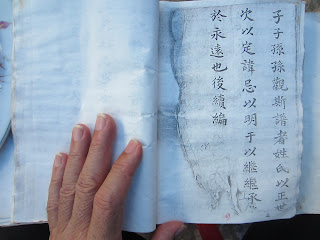 子子孫孫觀斯譜者姓氏以正世
次以定諱忌以明于以繼繼承
於永遠也後續編